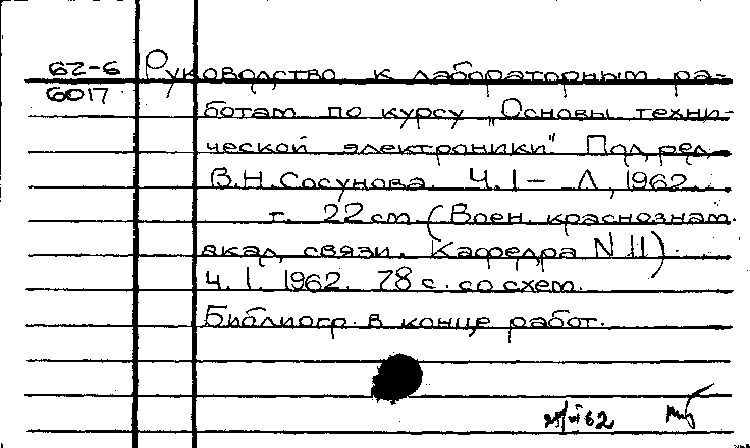 62-6
6017
Руководство к лабораторным ра-
ботам по курсу „Основы техни-
ческой электроники". Под ред.
В.Н.Сосунова. Ч. I – Л, 1962.
т. 22 см. (Воен. краснознам.
акад. связи. Кафедра N 11).
Ч. I. 1962. 78 с. со схем.
Библиогр. в конце работ.
62